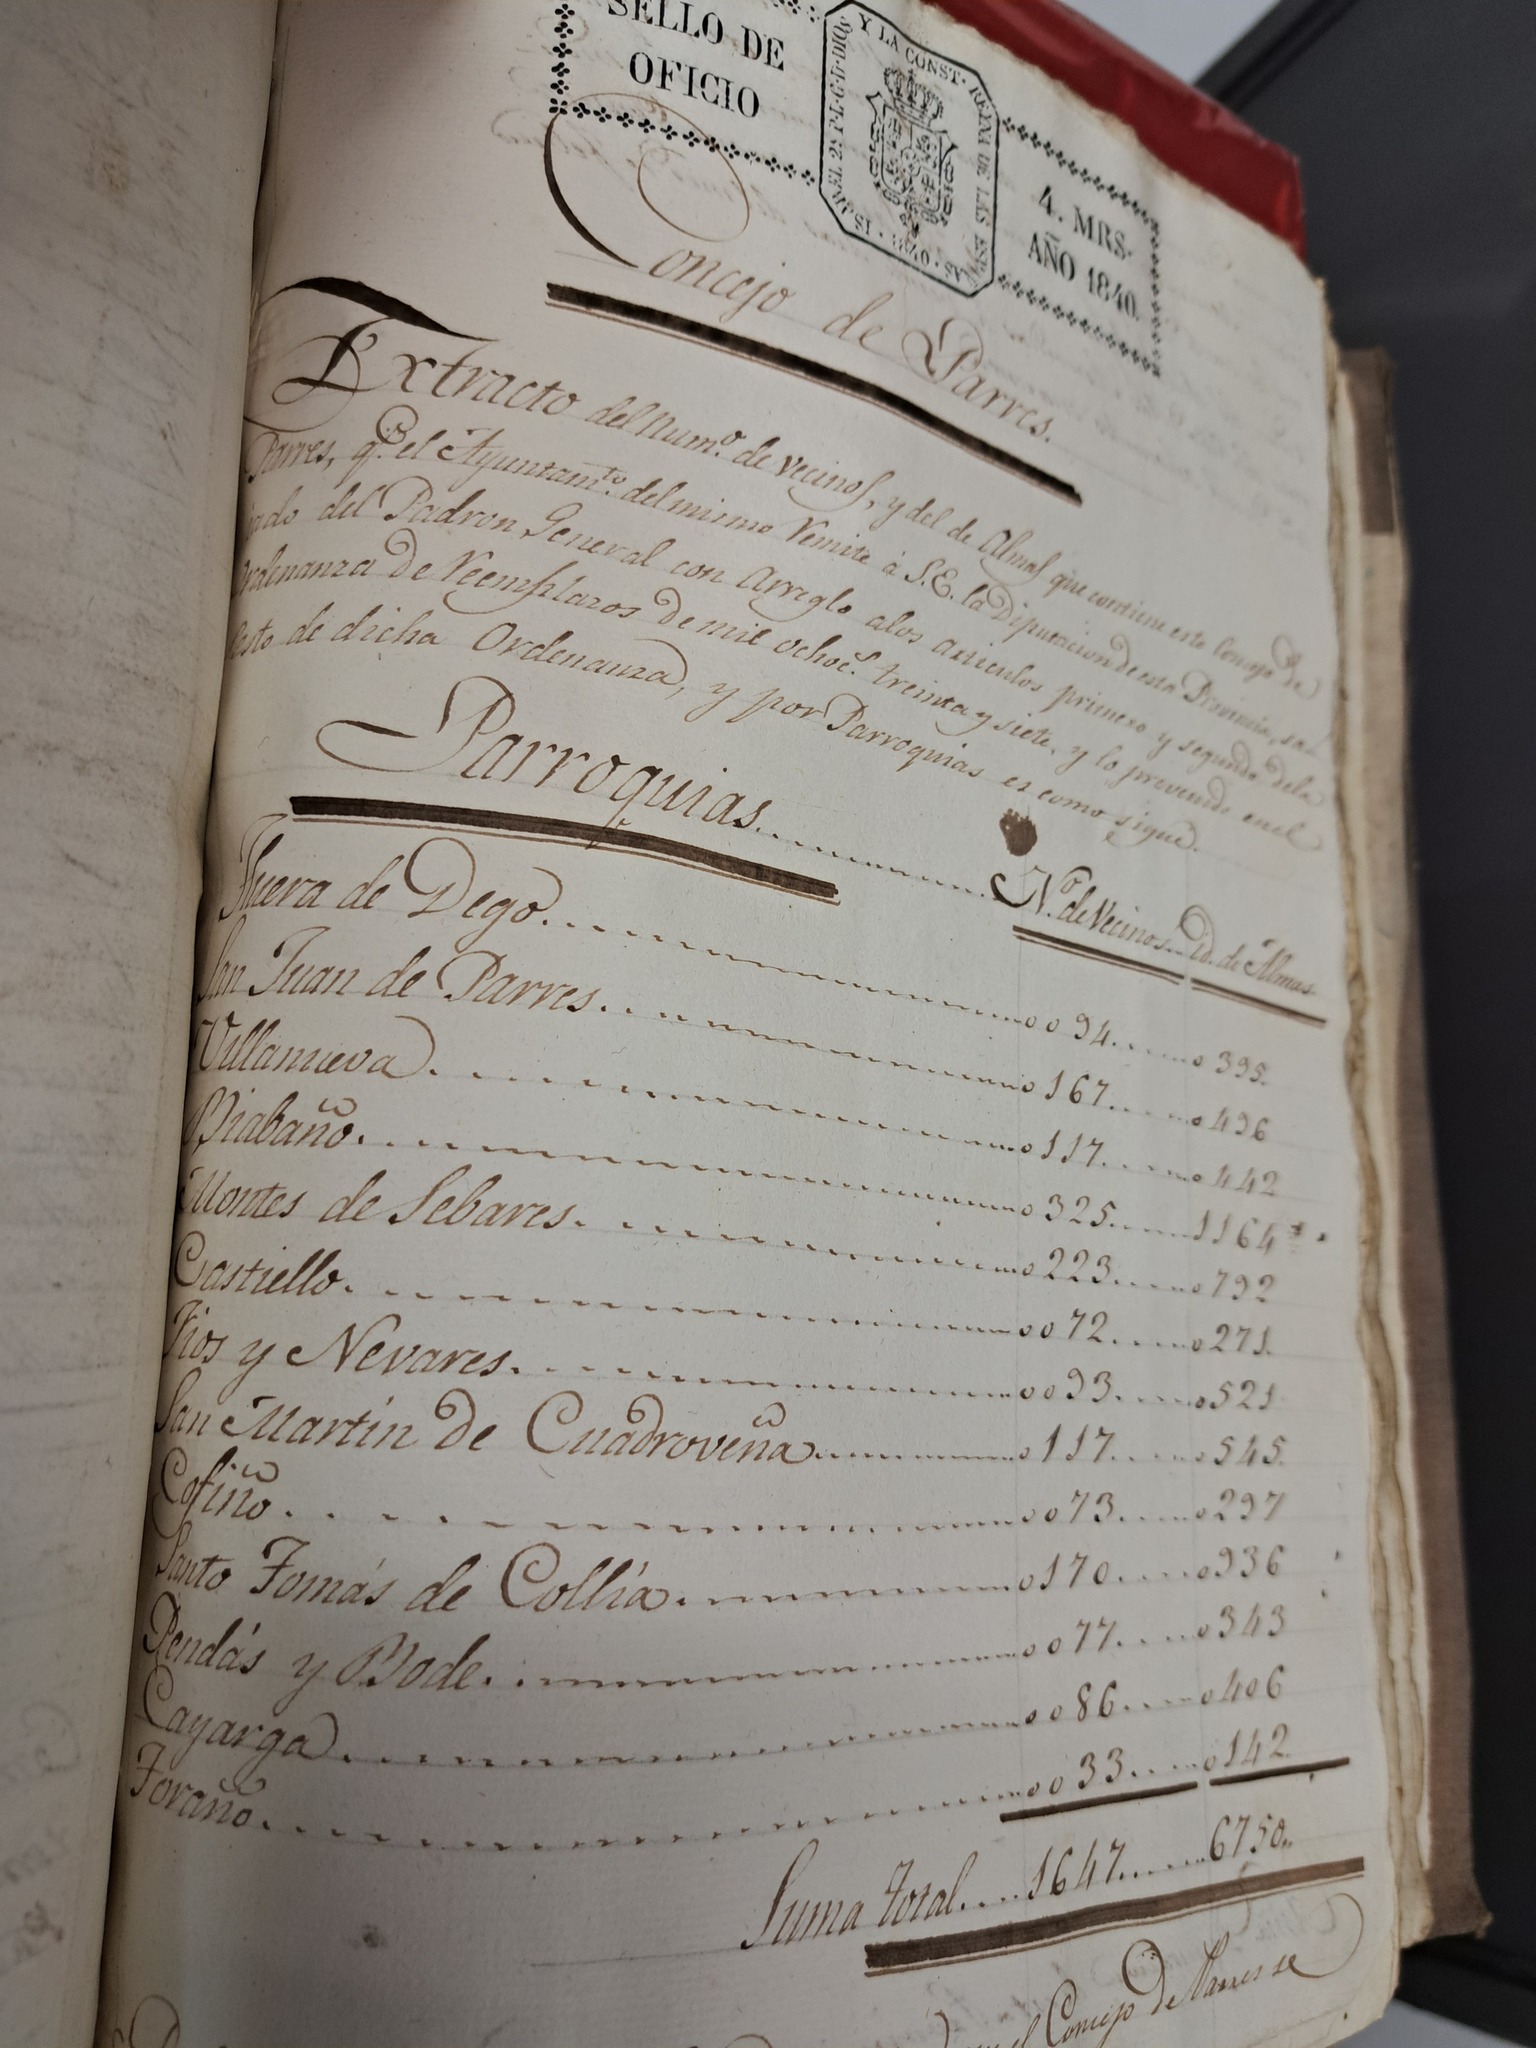 SELLO DE
OFICIO
Y LA CONST. REYNA DE LAS ESPAÑAS
ISABEL 2ª P.L.G.D.DIOS
1840
4. MRS.
AÑO 1840.
Concejo de Parres.
Extracto del Numº de vecinos, y del de Almas que contiene este Concejo de
Parres, qe. el Ayuntamto. del mismo Remite á S.E. la Diputacion de esta Provincia, sa-
cado del Padron General con Arreglo a los articulos primero y segundo dela
Ordenanza de Reemplazos de mil ochocs. treinta y siete, y lo prevenido en el
resto de dicha Ordenanza, y por Parroquias es como sigue.
Parroquias.... Nº. de Vecinos.. Id. de Almas
Huera de Dego.... 0094.... 0395.
San Juan de Parres.... 0167.... 0496
Villanueva.... 0117.... 0442
Biabaño.... 0325.... 1164
Montes de Sebares.... 0223.... 0792
Castiello.... 0072.... 0271.
Fios y Nevares.... 0093.... 0521
San Martin de Cuadroveña.... 0117.... 0545.
Cofiño.... 0073.... 0297
Santo Tomás de Collía.... 0170.... 0936
Pendás y Bode.... 0077.... 0343
Cayarga.... 0086.... 0406
Toraño.... 0033.... 0142.
Suma total.... 1647.... 6750..
el Concejo de Parres se